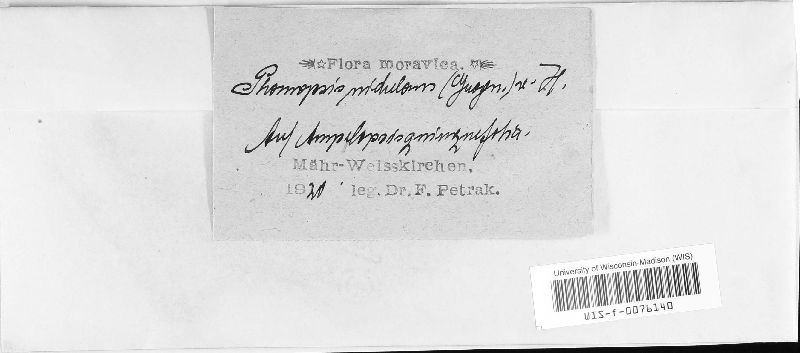 Flora moravica.
Phomopsis nidulans (Grogn.) v. H.
Auf Ampelopsis quinquefolia.
Mähr-Weisskirchen,
1920 leg. Dr. F. Petrak.
University of Wisconsin-Madison (WIS)
WIS-f-0076140